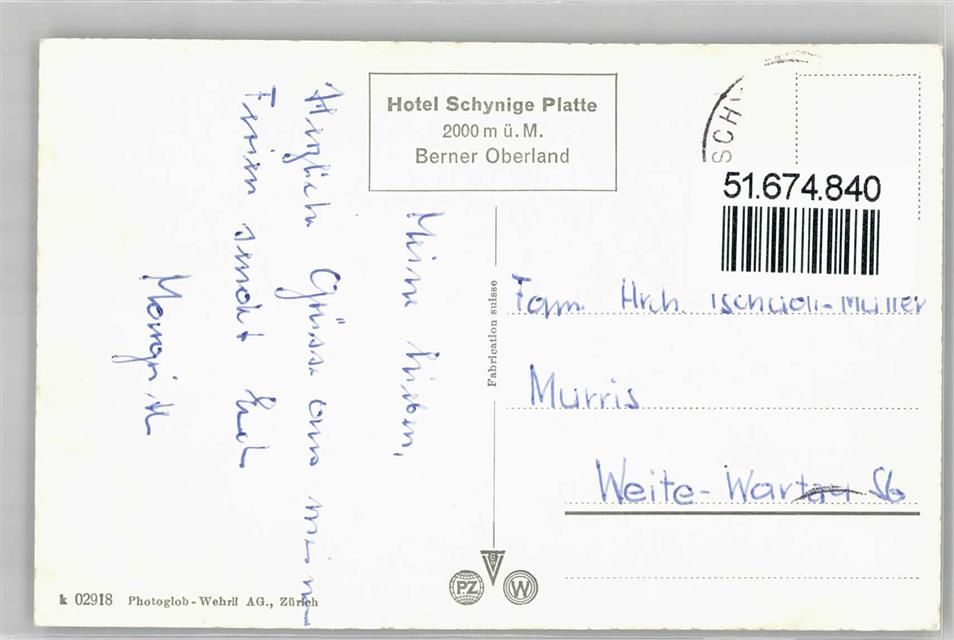 Hotel Schynige Platte
2000 m ü. M.
Berner Oberland
SCHY
51.674.840
Meine Lieben,
Herzliche Grüsse aus meinen
Ferien sendet Euch
Margrith
Fabrication suisse
Fam. Hch. Tschudi-Müller
Murris
Weite-Wartau SG
PZ
W
k 02918 Photoglob-Wehrli AG., Zürich